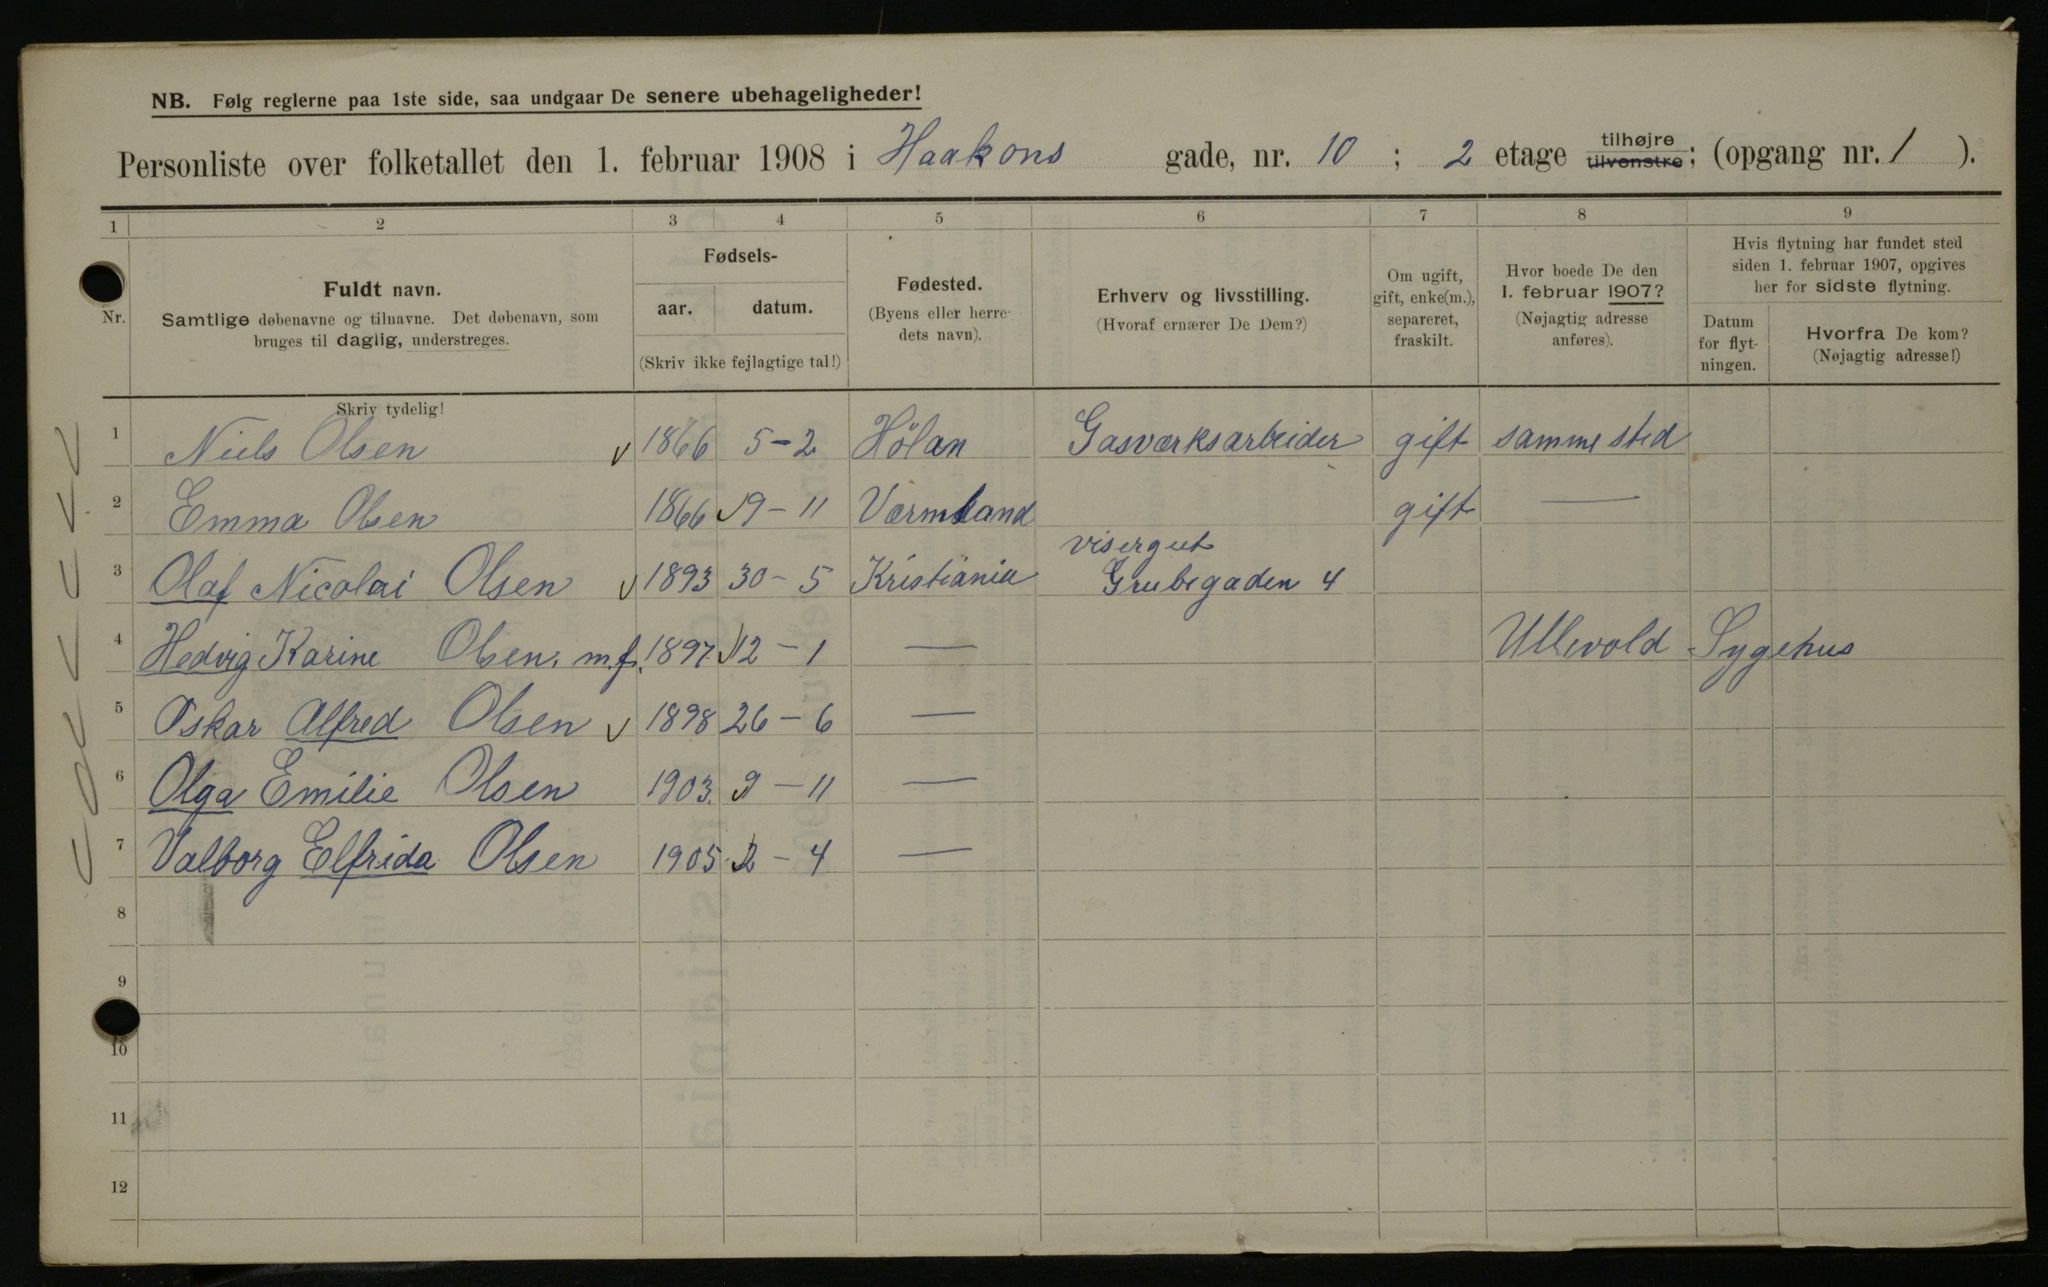 NB. Følg reglerne paa 1ste side, saa undgaar De senere ubehageligheder!
Personliste over folketallet den 1. februar 1908 i Haakons gade, nr. 10 ; 2 etage tilhøjre tilvenstre; (opgang nr. 1 ).
1 2 3 4 5 6 7 8 9
Nr.
Fuldt navn.
Samtlige døbenavne og tilnavne. Det døbenavn, som
bruges til daglig, understreges.
Skriv tydelig!
Fødsels-
aar. datum.
(Skriv ikke fejlagtige tal!)
Fødested.
(Byens eller herre-
dets navn).
Erhverv og livsstilling.
(Hvoraf ernærer De Dem?)
Om ugift,
gift, enke(m.),
separeret,
fraskilt.
Hvor boede De den
1. februar 1907?
(Nøjagtig adresse
anføres).
Hvis flytning har fundet sted
siden 1. februar 1907, opgives
her for sidste flytning.
Datum
for flyt-
ningen.
Hvorfra De kom?
(Nøjagtig adresse!)
1 Niels Olsen 1866 5-2 Hölan Gasværksarbeider gift samme sted
2 Emma Olsen 1866 19-11 Værmland gift —
3 Olaf Nicolai Olsen 1893 30-5 Kristiania visergut
Grubegaden 4
4 Hedvig Karine Olsen. m.f. 1897. 12-1 — Ullevold Sygehus
5 Oskar Alfred Olsen 1898 26-6 —
6 Olga Emilie Olsen 1903. 9-11 —
7 Valborg Elfrida Olsen 1905 2-4 —
8
9
10
11
12